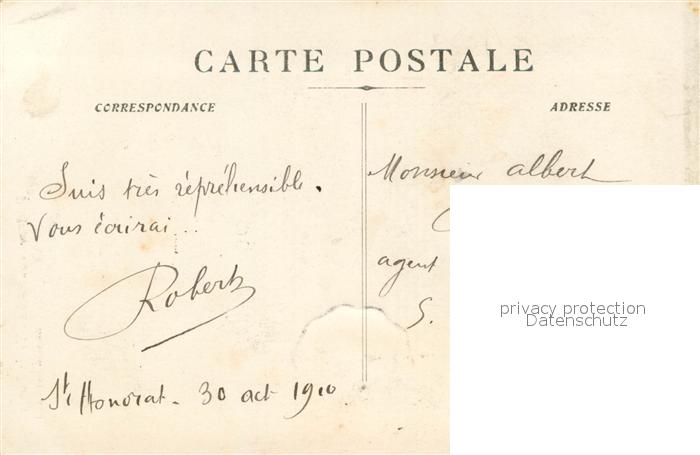 CARTE POSTALE
CORRESPONDANCE
ADRESSE
Suis très répréhensible.
Vous écrirai...
Robert
St Honorat - 30 oct 1910
Monsieur Albert
agent
S.
privacy protection
Datenschutz